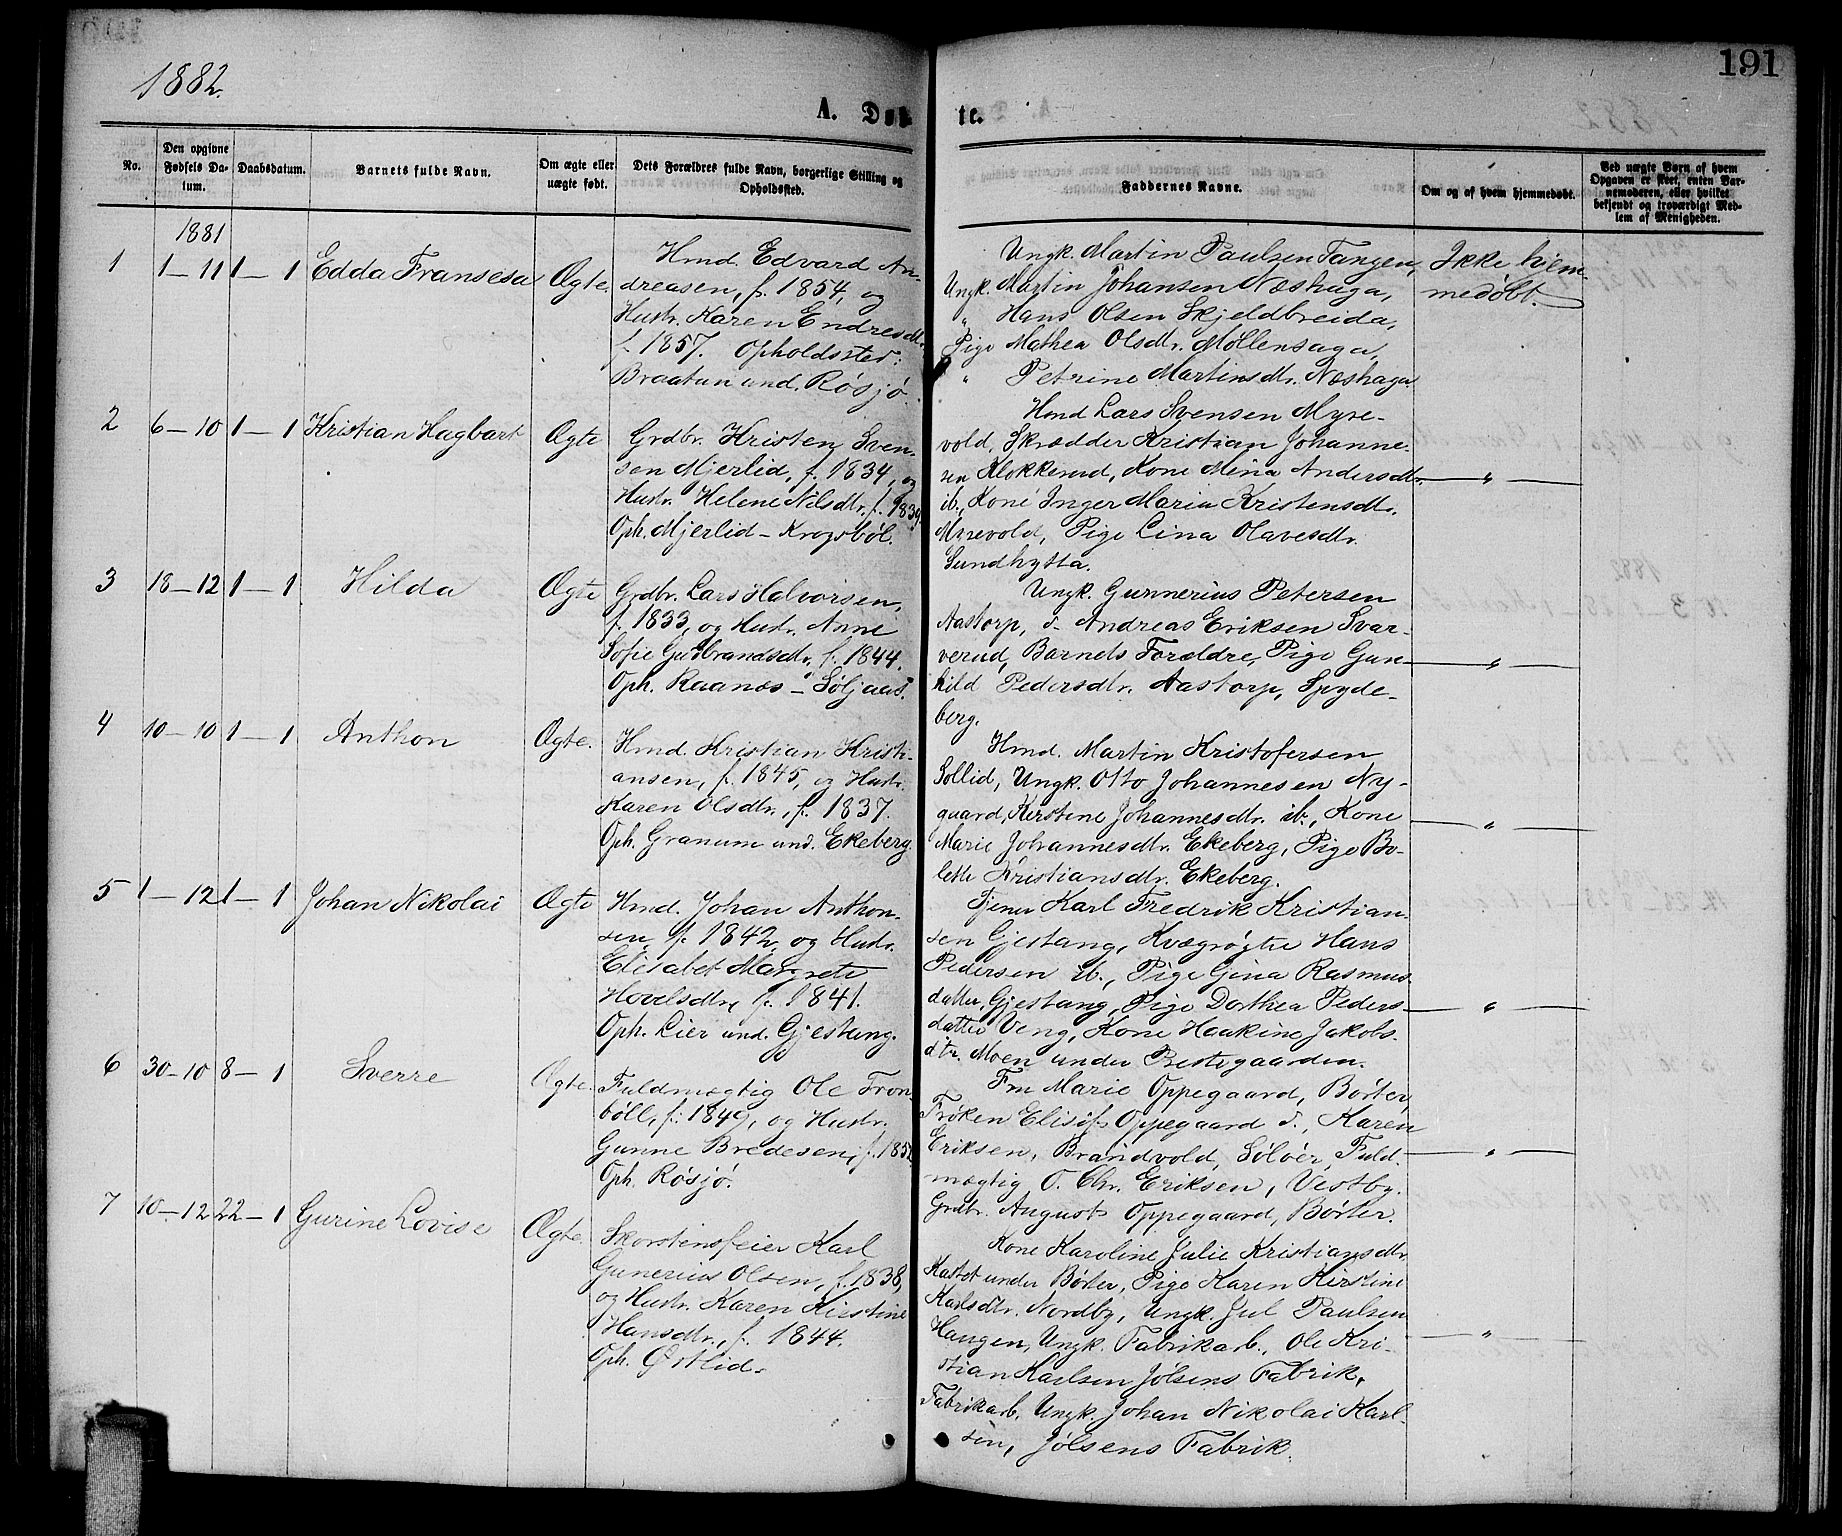 1882.
191
A. Døbte.
No.
Den opgivne Fødsels Datum.
Daabsdatum.
Barnets fulde Navn.
Om ægte eller uægte født.
Dets Forældres fulde Navn, borgerlige Stilling og Opholdssted.
Faddernes Navne.
Om og af hvem hjemmedøbt.
Ved uægte Børn af hvem Opgaven er sket, enten Barnemoderen, eller hvilket bekjendt og troværdigt Medlem af Menigheden.
1881
1 1–11 1–1 Edda Fransesa Ægte.
Hmd. Edvard An-
dreasen, f. 1854, og
Hustr. Karen Endresdtr.
f. 1857. Opholdssted:
Braatan und. Røsjø.
Ungk. Martin Paulsen Tangen,
Ungk. Martin Johansen Næshaga,
" Hans Olsen Skjeldbreida,
Pige Mathea Olsdtr. Møllensaga,
" Petrine Martinsdtr. Næshaga
Ikke hjem-
medøbt.
2 6–10 1–1 Kristian Hagbart Ægte
Grdbr. Kristen Sven-
sen Mjerlid, f. 1834, og
Hustr. Helene Nilsdtr. f. 1839.
Oph. Mjerlid – Krogsbøl.
Hmd Lars Svensen Myre-
vold, Skrædder Kristian Johanne-
sen Klokkerud, Kone Mina Andersdtr.
ib., Kone Inger Maria Kristensdtr.
Myrevold, Pige Lina Olavesdtr.
Sundhytta.
"
3 18–12 1–1 Hilda Ægte
Grdbr. Lars Halvorsen,
f. 1833, og Hustr. Anne
Sofie Gudbrandsdtr, f. 1844.
Oph. Raanæs – Søljaas.
Ungk. Gunnerius Petersen
Aastorp, d. Andreas Eriksen Svar-
verud, Barnets Forældre, Pige Gun-
hild Pedersdtr. Aastorp, Spyde-
berg.
"
4 10–10 1–1 Anthon Ægte.
Hmd Kristian Kristi-
ansen, f. 1845, og Hustr.
Karen Olsdtr., f. 1837.
Oph. Granum und. Ekeberg.
Hmd. Martin Kristofersen
Sollid, Ungk. Otto Johannesen Ny-
gaard, Kirstine Johannesdtr. ib., Kone
Marie Johannesdtr. Ekeberg, Pige Bo-
lette Kristiansdtr. Ekeberg.
"
5 1–12 1–1 Johan Nikolai Ægte
Hmd. Johan Anthon-
sen, f. 1842, og Hustr.
Elisabet Margrete
Hovelsdtr, f. 1841.
Oph. Lier und. Gjestang.
Tjener Karl Fredrik Kristian-
sen Gjestang, Kvægrøgter Hans
Pedersen ib., Pige Gina Rasmus-
datter, Gjestang, Pige Dorthea Peders-
datter Veng, Kone Haakine Jakobs-
dtr. Moen under Prestegaarden.
"
6 30–10 8–1 Sverre Ægte.
Fuldmægtig Ole Tron-
bøll, f. 1849, og Hustr.
Gunne Bredesen, f.
Oph. Røsjø.
Fru Marie Oppegaard, Børter,
Frøken Elisif Oppegaard d., Karen
Eriksen, Brandvold, Soløer, Fuld-
mægtig O. Chr. Eriksen, Vestby.
Grdbr. August Oppegaard, Børter.
"
7 10–12 22–1 Gurine Lovise Ægte.
Skorstensfeier Karl
Gunerius Olsen, f. 1838,
og Hustr. Karen Kirstine
Hansdtr., f. 1844.
Oph. Østlid.
Kone Karoline Julie Kristiansdtr.
Kastet under Børter, Pige Karen Kirstine
Karlsdtr. Nordby, Ungk. Jul Paulsen
Haugen, Ungk. Fabrikarb. Ole Kri-
stian Karlsen Jølsens Fabrik,
Fabrikarb. Ungk. Johan Nikolai Karl-
sen, Jølsens Fabrik.
"